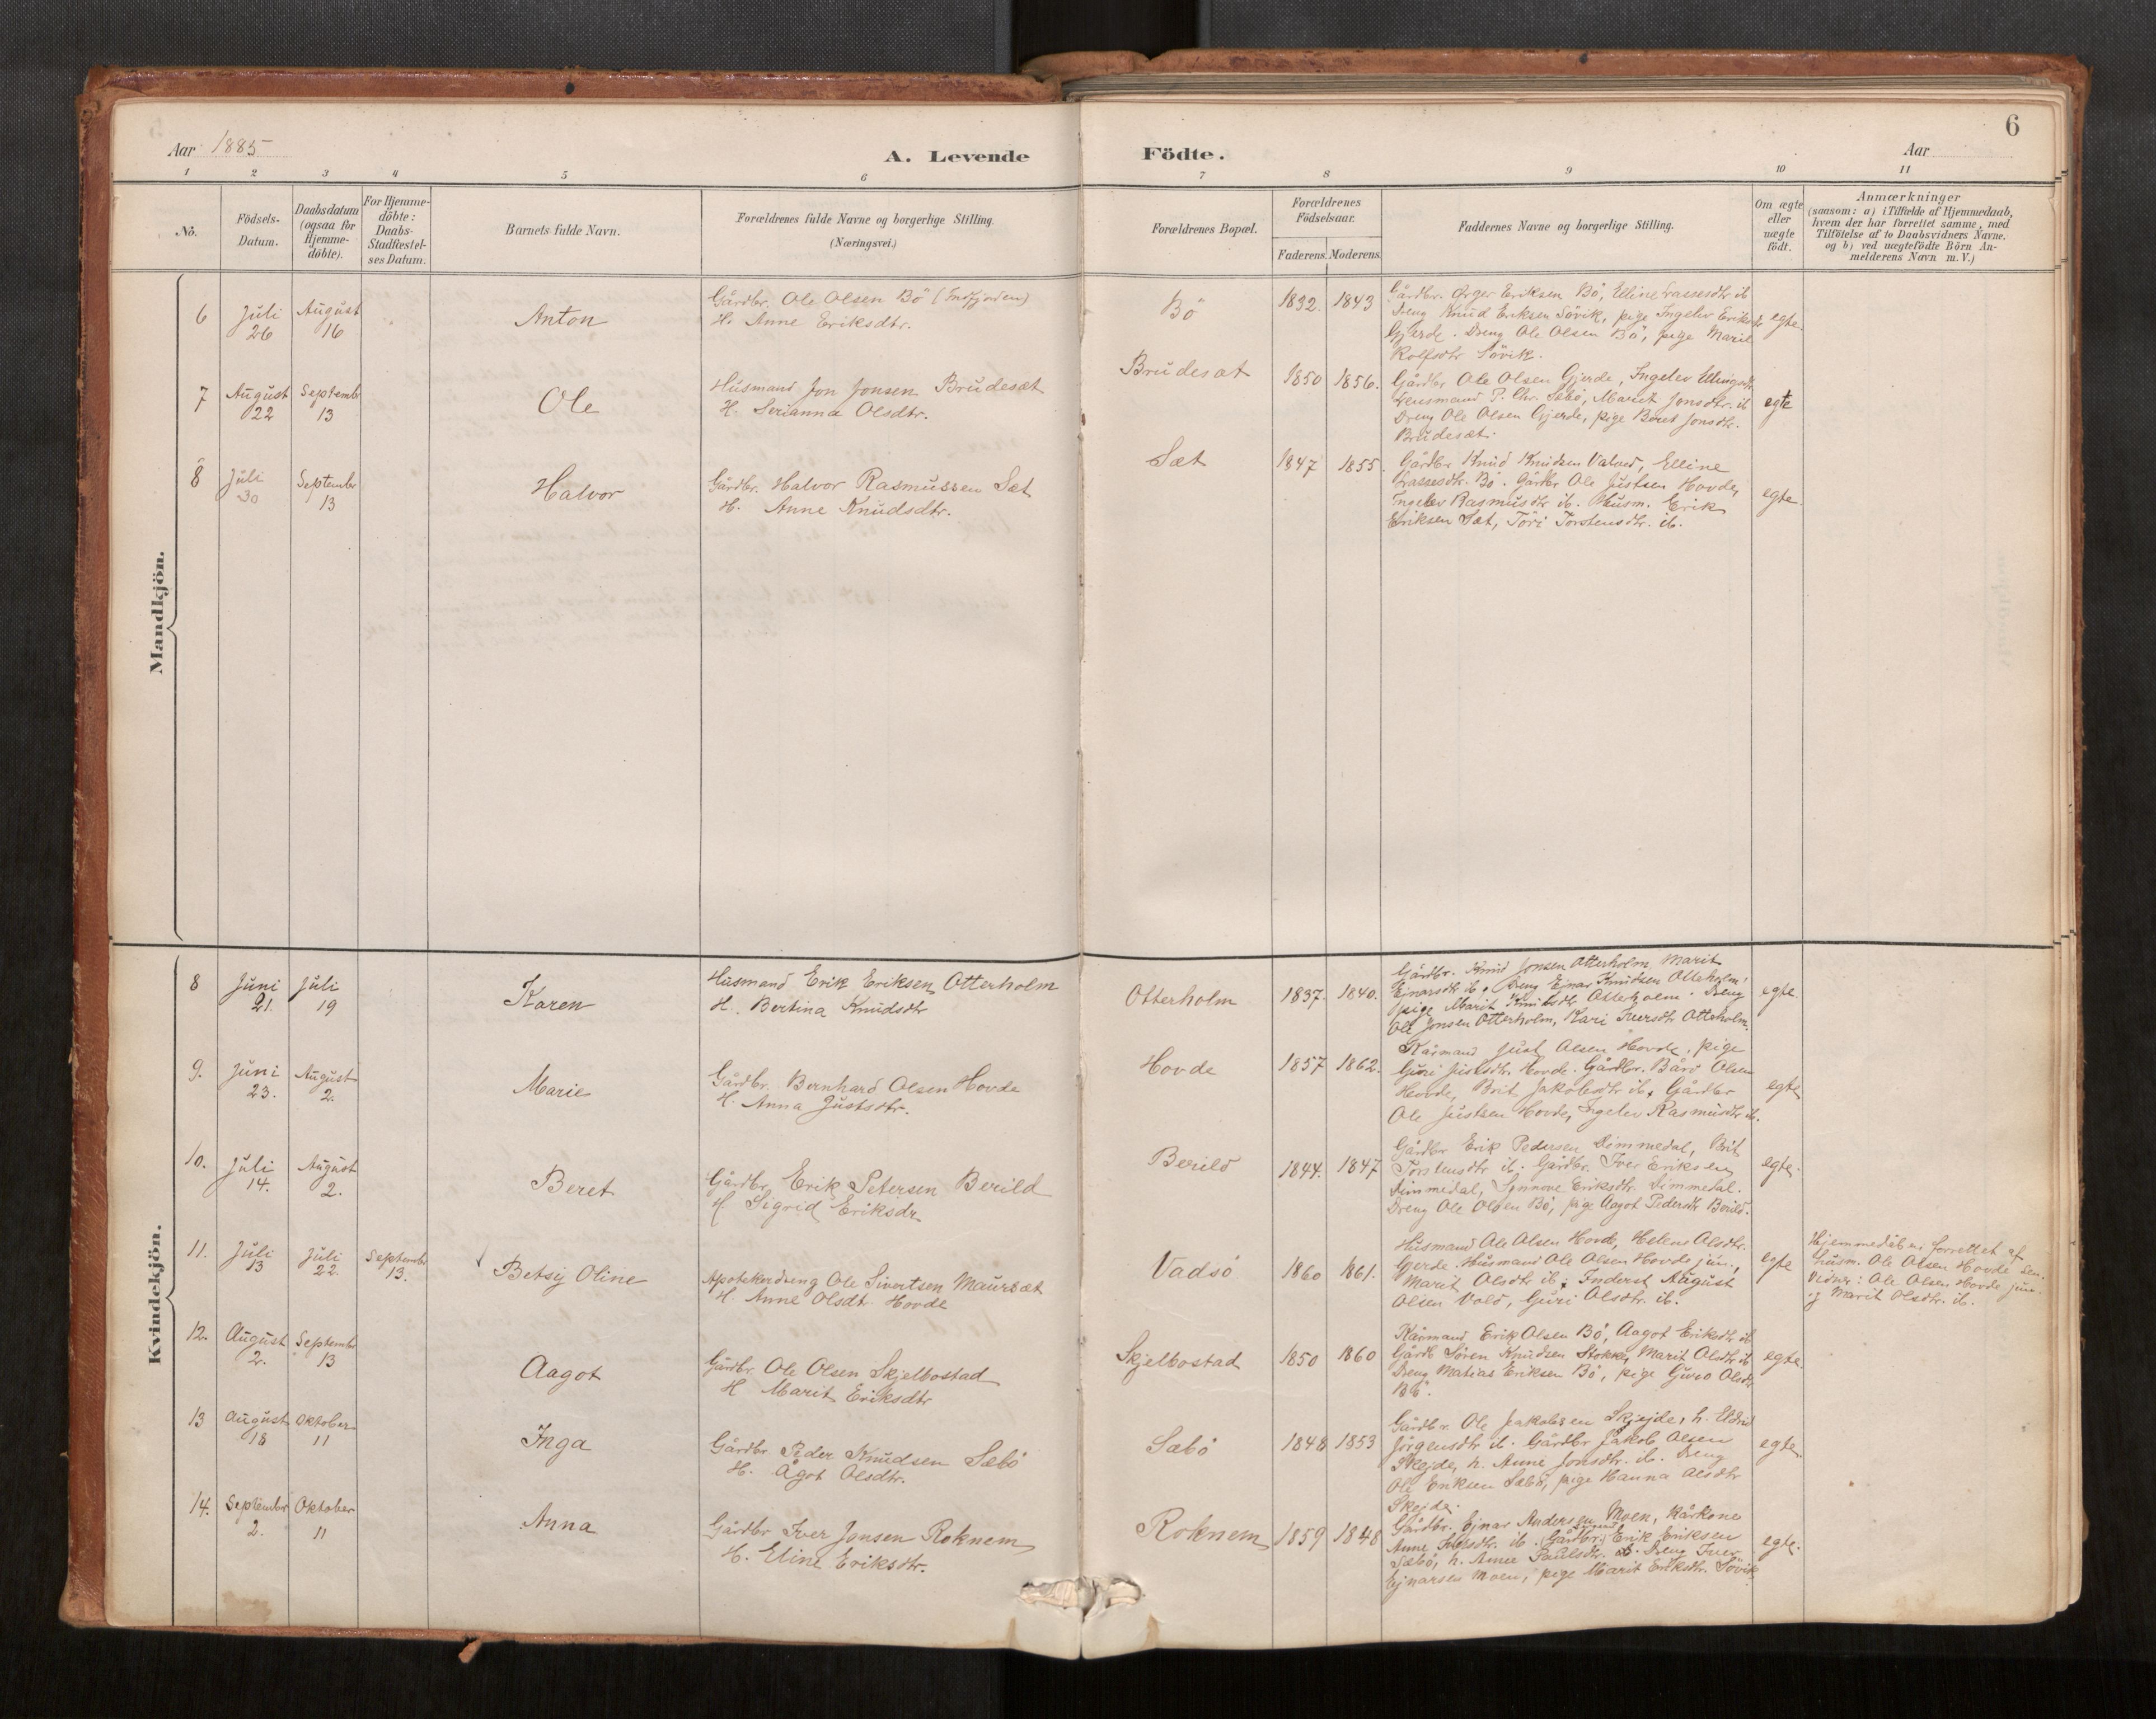 6
Aar 1885
A. Levende Födte.
Aar
1 2 3 4 5 6 7 8 9 10 11
No.
Födsels-
Datum.
Daabsdatum
(ogsaa for
Hjemme-
döbte).
For Hjemme-
döbte:
Daabs-
Stadfæstel-
ses Datum.
Barnets fulde Navn.
Forældrenes fulde Navne og borgerlige Stilling.
(Næringsvei.)
Forældrenes Bopæl.
Forældrenes
Födselsaar.
Faderens. Moderens.
Faddernes Navne og borgerlige Stilling.
Om ægte
eller
uægte
födt.
Anmærkninger
(saasom: a) i Tilfælde af Hjemmedaab,
hvem der har forrettet samme, med
Tilföielse af to Daabsvidners Navne.
og b) ved uægtefödte Börn An-
melderens Navn m. V.)
Mandkjön.
6
Juli
26
August
16
Anton
Gårdbr. Ole Olsen Bö (Indfjorden)
H. Anne Eriksdtr.
Bö
1832. 1843
Gårdbr. Eriksen Bö, Elline Lassesdtr ib
Dreng Knud Eriksen Sövik, pige Ingelev Eriksdtr
Gjerde. Dreng Ole Olsen Bö, pige Marit
Rolfsdtr Sövik.
egte
7
August
22
Septembr
13
Ole
Husmand Jon Jonsen Brudesæt
H. Serianna Olsdtr.
Brudesæt
1850 1856.
Gårdbr Ole Olsen Gjerde, Ingelev Ellingsdtr
Lensmand P. Chr. Sæbö, Marit Jonsdtr. ib
Dreng Ole Olsen Gjerde, pige Beret Jonsdtr.
Brudesæt.
egte
8
Juli
30
Septembr
13
Halvor
Gårdbr. Halvor Rasmussen Sæt
H. Anne Knudsdtr.
Sæt
1847 1855.
Gårdbr Knud Knudsen Elline
Lassesdtr. Bö. Gårdbr Ole Justsen Hovde,
Ingelev Rasmusdtr ib. Husm. Erik
Eriksen Sæt, Töri Torstensdtr. ib.
egte
Kvindekjön.
8
Juni
21.
Juli
19
Karen
Husmand Erik Eriksen Otterholm
H. Bertina Knudsdtr
Otterholm
1837. 1840.
Gårdbr. Knud Jonsen Otterholm, Marit
Ejnarsdtr ib. Dreng Ejnar Knudsen Otterholm,
pige Marit Knudsdtr Otterholm. Dreng
Ole Jonsen Otterholm, Kari Iversdtr Otterholm.
egte.
9.
Juni
23.
August
2.
Marie
Gårdbr. Bernhard Olsen Hovde
H. Anna Justsdtr.
Hovde
1857 1862.
Kårmand Just Olsen Hovde, pige
Guri Justsdtr. Hovde. Gårdbr. Bård Olsen
Hovde, Brit Jakobsdtr ib. Gårdbr
Ole Justsen Hovde, Ingelev Rasmusdtr ib.
egte
10.
Juli
14.
August
2.
Beret
Gårdbr. Erik Petersen Berild
H. Sigrid Eriksdtr
Berild
1844. 1847
Gårdbr Erik Pedersen Dimmedal, Brit
Torstensdtr ib. Gårdbr. Iver Eriksen
Dimmedal, Synnove Eriksdtr. Dimmedal.
Dreng Ole Olsen Bö, pige Aagot Pedersdtr Berild.
egte.
11.
Juli
13
Juli
22.
Septembr
13.
Betsy Oline
Apotekerdreng Ole Sivertsen Maursæt
H Anne Olsdtr. Hovde
Vadsö
1860 1861.
Husmand Ole Olsen Hovde, Helene Olsdtr.
Gjerde. Husmand Ole Olsen Hovde jun.,
Marit Olsdtr ib. Inderst August
Olsen Vold, Guri Olsdtr. ib.
egte
Hjemmedåben forrettet af
Husm. Ole Olsen Hovde sen.
Vidner: Ole Olsen Hovde jun.
og Marit Olsdtr. ib.
12.
August
2.
Septembr
13
Aagot
Gårdbr Ole Olsen Skjelbostad
H Marit Eriksdtr
Skjelbostad
1850 1860
Kårmand Erik Olsen Bö, Aagot Eriksdtr ib
Gårdb Sören Knudsen Stokke, Marit Olsdtr ib
Dreng Matias Eriksen Bö, pige Guro Olsdtr
Bö.
egte.
13
August
18
Oktober
11
Inga
Gårdbr Peder Knudsen Sæbö
H. Ågot Olsdtr.
Sæbö
1848 1853
Gårdbr. Ole Jakobsen Skjejde, h. Eldrid
Jörgensdtr ib. Gårdbr Jakob Olsen
Skejde, h. Anne Jonsdtr. ib. Dreng
Ole Eriksen Sæbö, pige Hanna Olsdtr
Skejde.
egte.
14.
Septembr
2.
Oktober
11
Anna
Gårdbr Iver Jonsen Roknem
H. Eline Eriksdtr.
Roknem
1859 1848
Gårdbr. Ejnar Andersen Moen, kårkone
Anne ib. Gårdbr. Erik Eriksen
Sæbö, h. Anne Paulsdtr. Dreng Iver
Ejnarsen Moen, pige Marit Eriksdtr. Sövik
egte.